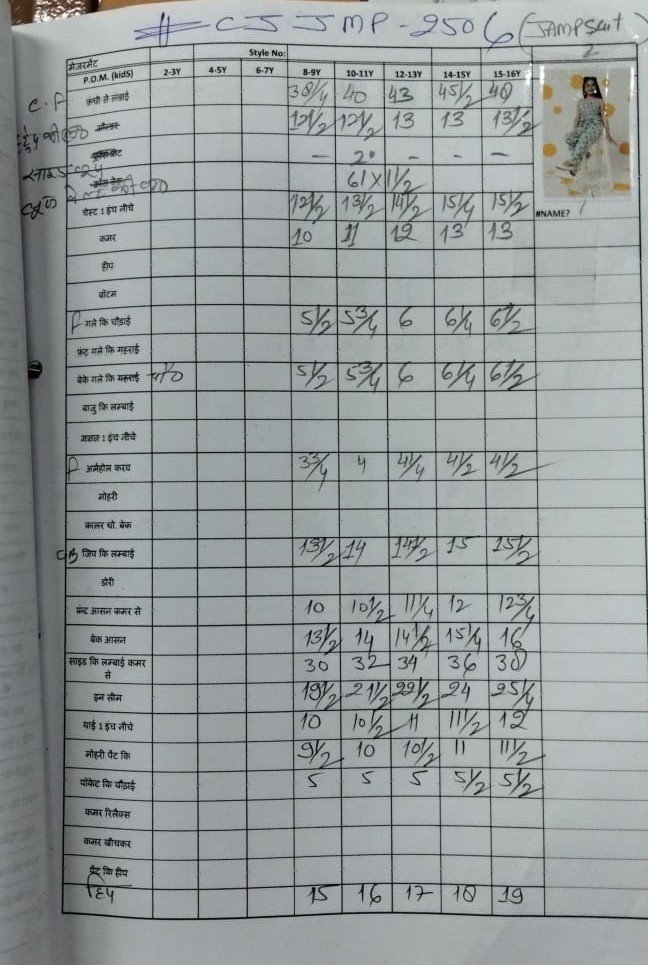 # CJJMP-2506 (JAMPSuit
मेजरमेंट Style No: 2
P.O.M. (kidS) 2-3Y 4-5Y 6-7Y 8-9Y 10-11Y 12-13Y 14-15Y 15-16Y
C.F कंधी से लंबाई 38 1/4 40 43 45 1/2 48
12 1/2 12 1/2 13 13 13 1/2
- 2" - - -
61 X 11 1/2
चेस्ट 1 इंच नीचे 12 1/2 13 1/2 14 1/2 15 1/4 15 1/2 #NAME?
कमर 10 11 12 13 13
हीप
बॉटम
F गले कि चौड़ाई 5 1/2 5 3/4 6 6 1/4 6 1/2
फ्रंट गले कि गहराई
बेके गले कि 5 1/2 5 3/4 6 6 1/4 6 1/2
बाजु कि लम्बाई
मसल 1 इंच नीचे
F अर्महोल करय 3 3/4 4 4 1/4 4 1/2 4 1/2
मोहरी
कालर चो. बेक
CB जिप कि लम्बाई 13 1/2 14 14 1/2 15 15 1/2
डोरी
फ्रंट आसन कमर से 10 10 1/2 11 1/4 12 12 3/4
बेक आसन 13 1/2 14 14 1/2 15 1/4 16
साइड कि लम्बाई कमर से 30 32 34 36 38
इन सीम 19 1/2 21 1/2 22 1/2 24 25 1/4
थाई 1 इंच नीचे 10 10 1/2 11 11 1/2 12
मोहरी पेंट कि 9 1/2 10 10 1/2 11 11 1/2
पॉकेट कि चौड़ाई 5 5 5 5 1/2 5 1/2
कमर रिलैक्स
कमर खीचकर
पेंट कि हीप
हिप 15 16 17 18 19